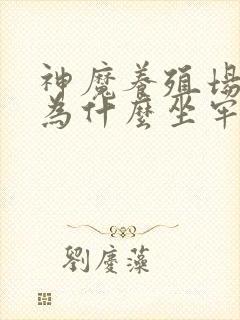 神魔養殖場
為什麼坐牢
劉慶藻